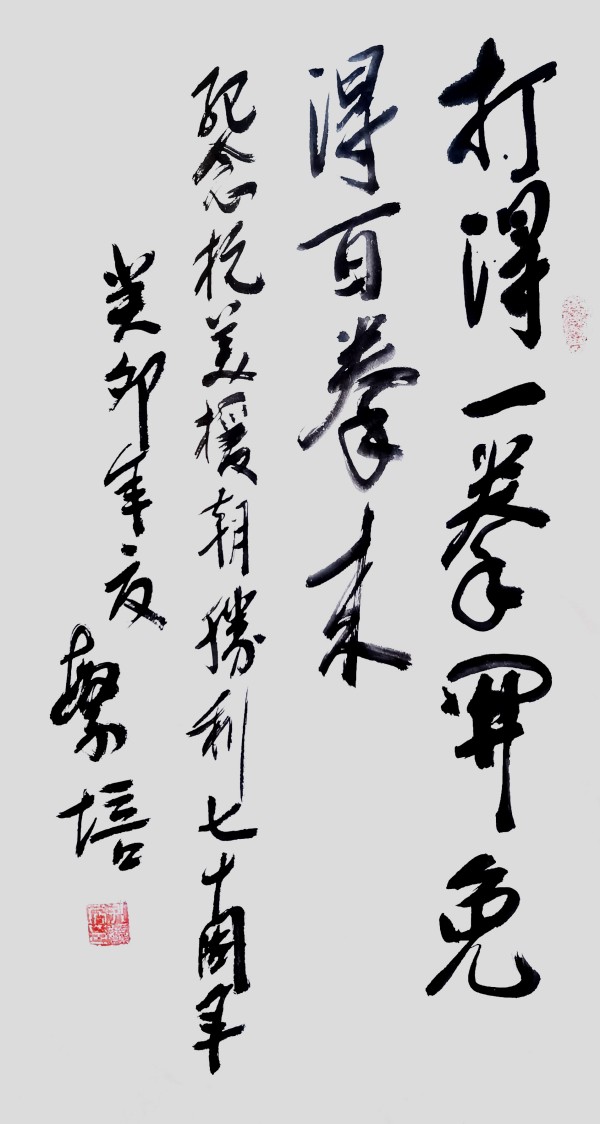 打得一拳開免
得百拳来
紀念抗美援朝勝利七十周年
癸卯年夏
繁培